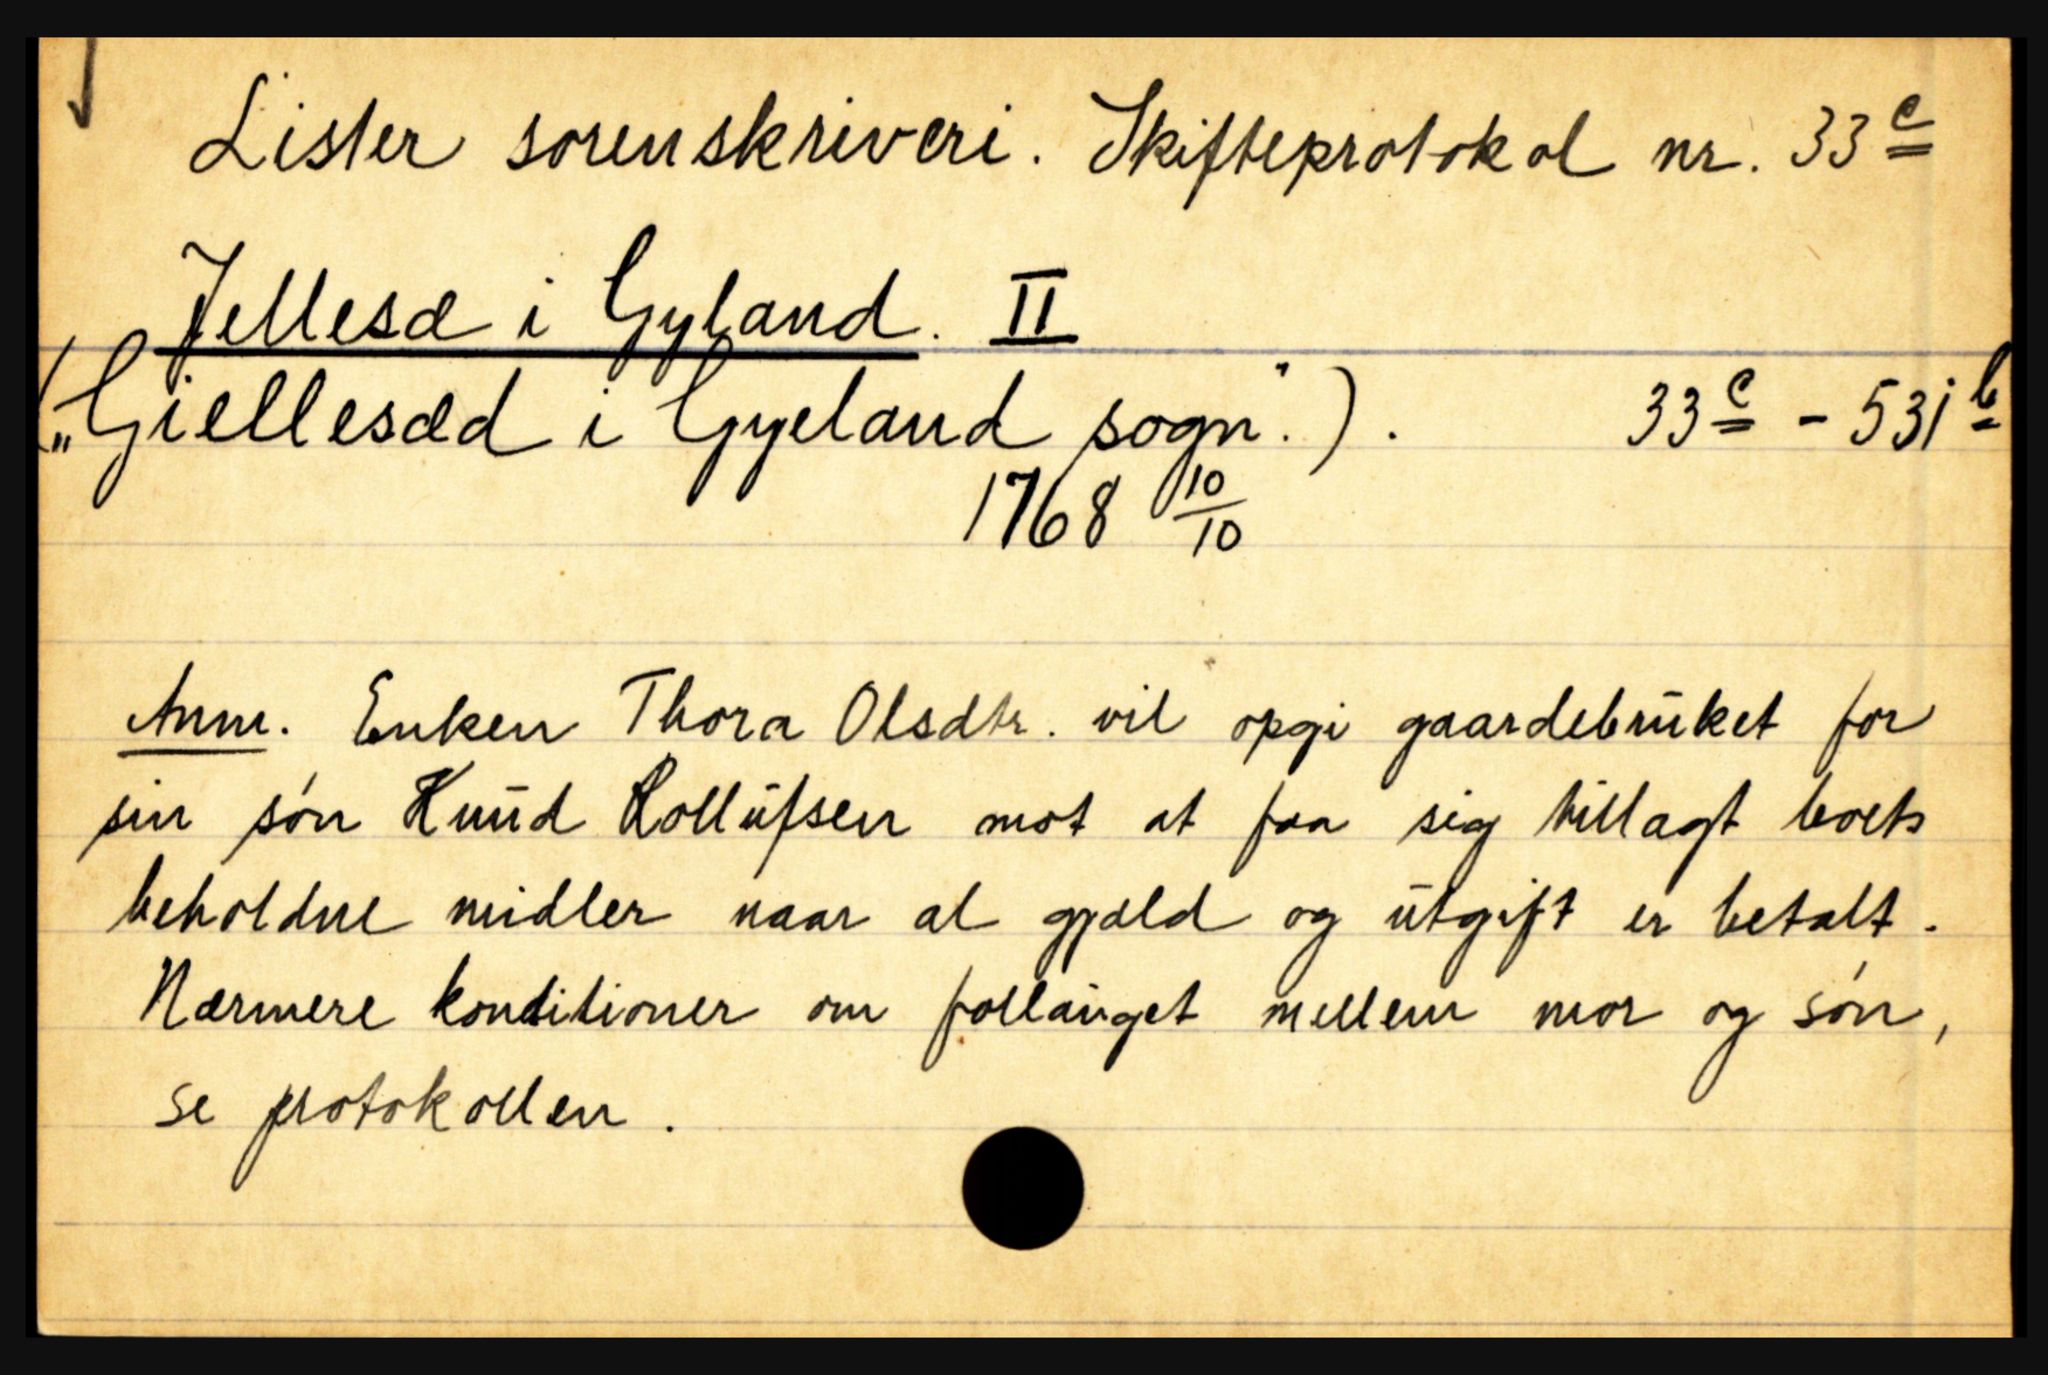 Lister sorenskriveri. Skifteprotokol nr. 33c
Jellesæ i Gyland. II
(„Giellesæd i Gyeland sogn".). 33c - 531b
1768 10/10
Anm. Enken Thora Olsdtr. vil opgi gaardebruket for
sin søn Knud Rollufsen mot at faa sig tillagt boets
beholdne midler naar al gjæld og utgift er betalt.
Nærmere konditioner om follauget mellem mor og søn,
se protokollen.